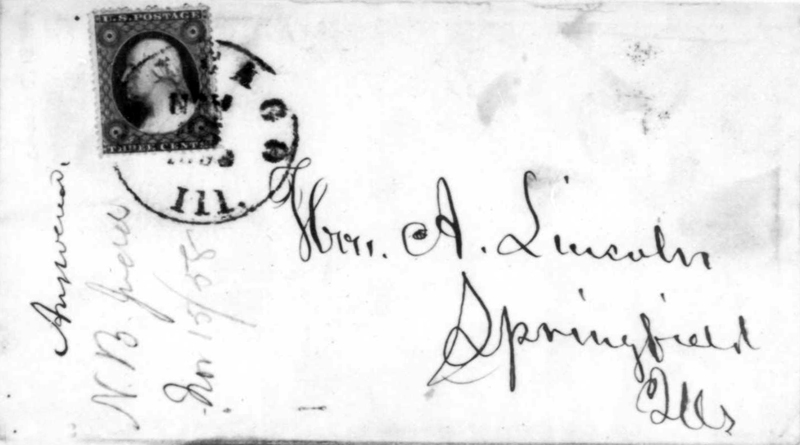 U.S. POSTAGE
THREE CENTS
ICGO
NOV
Ill.
Hon. A. Lincoln
Springfield
Ills
Answered.
N. B.
Nov 15/58